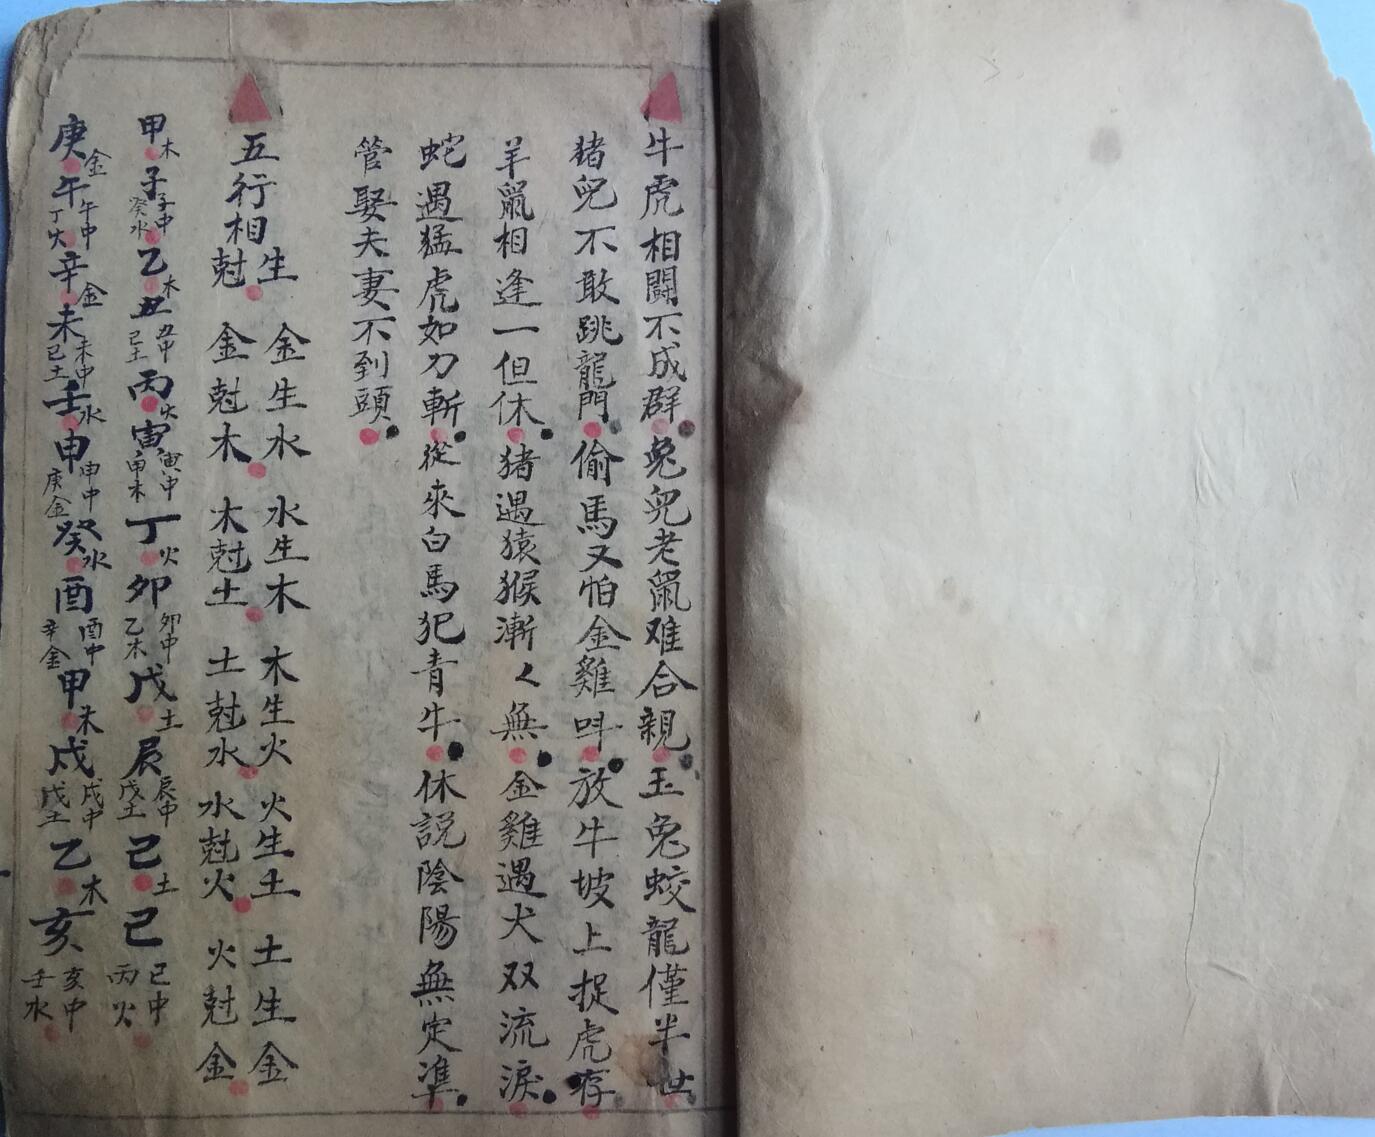 牛虎相鬪不成群兔兒老鼠难合親玉兔蛟龍僅半世
猪兒不敢跳龍門偷馬又怕金雞叫放牛坡上捉虎存
羊鼠相逢一但休猪遇猿猴漸く無金雞遇犬双流淚
蛇遇猛虎如刀斬從來白馬犯青牛休説陰陽無定準
管娶夫妻不到頭
五行相生尅 金生水 水生木 木生火 火生土 土生金
金尅木 木尅土 土尅水 水尅火 火尅金
甲木子子中癸水乙木丑丑中己土丙火寅寅中甲木丁火卯卯中乙木戊土辰辰中戊土己土巳巳中丙火
庚金午午中丁火辛金未未中己土壬水申申中庚金癸水酉酉中辛金甲木戍戍中戊土乙木亥亥中壬水